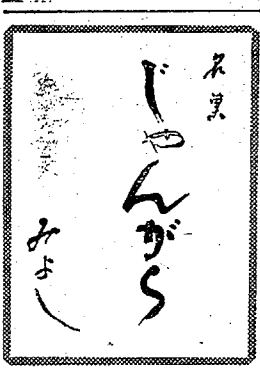 名菓
じゃんがら
みよし